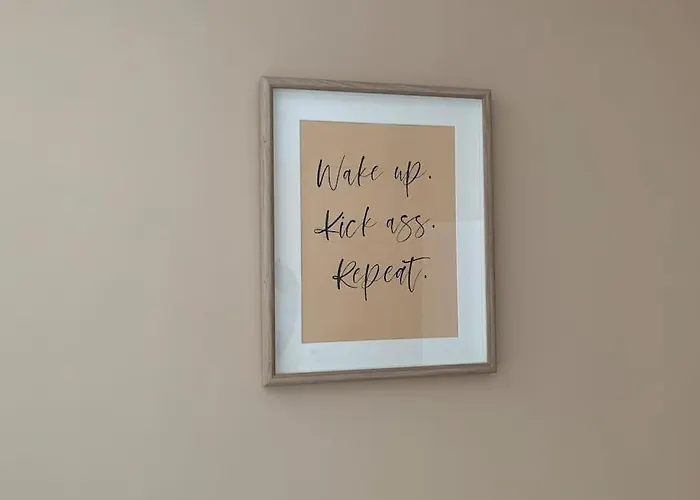 Wake up.
Kick ass.
Repeat.